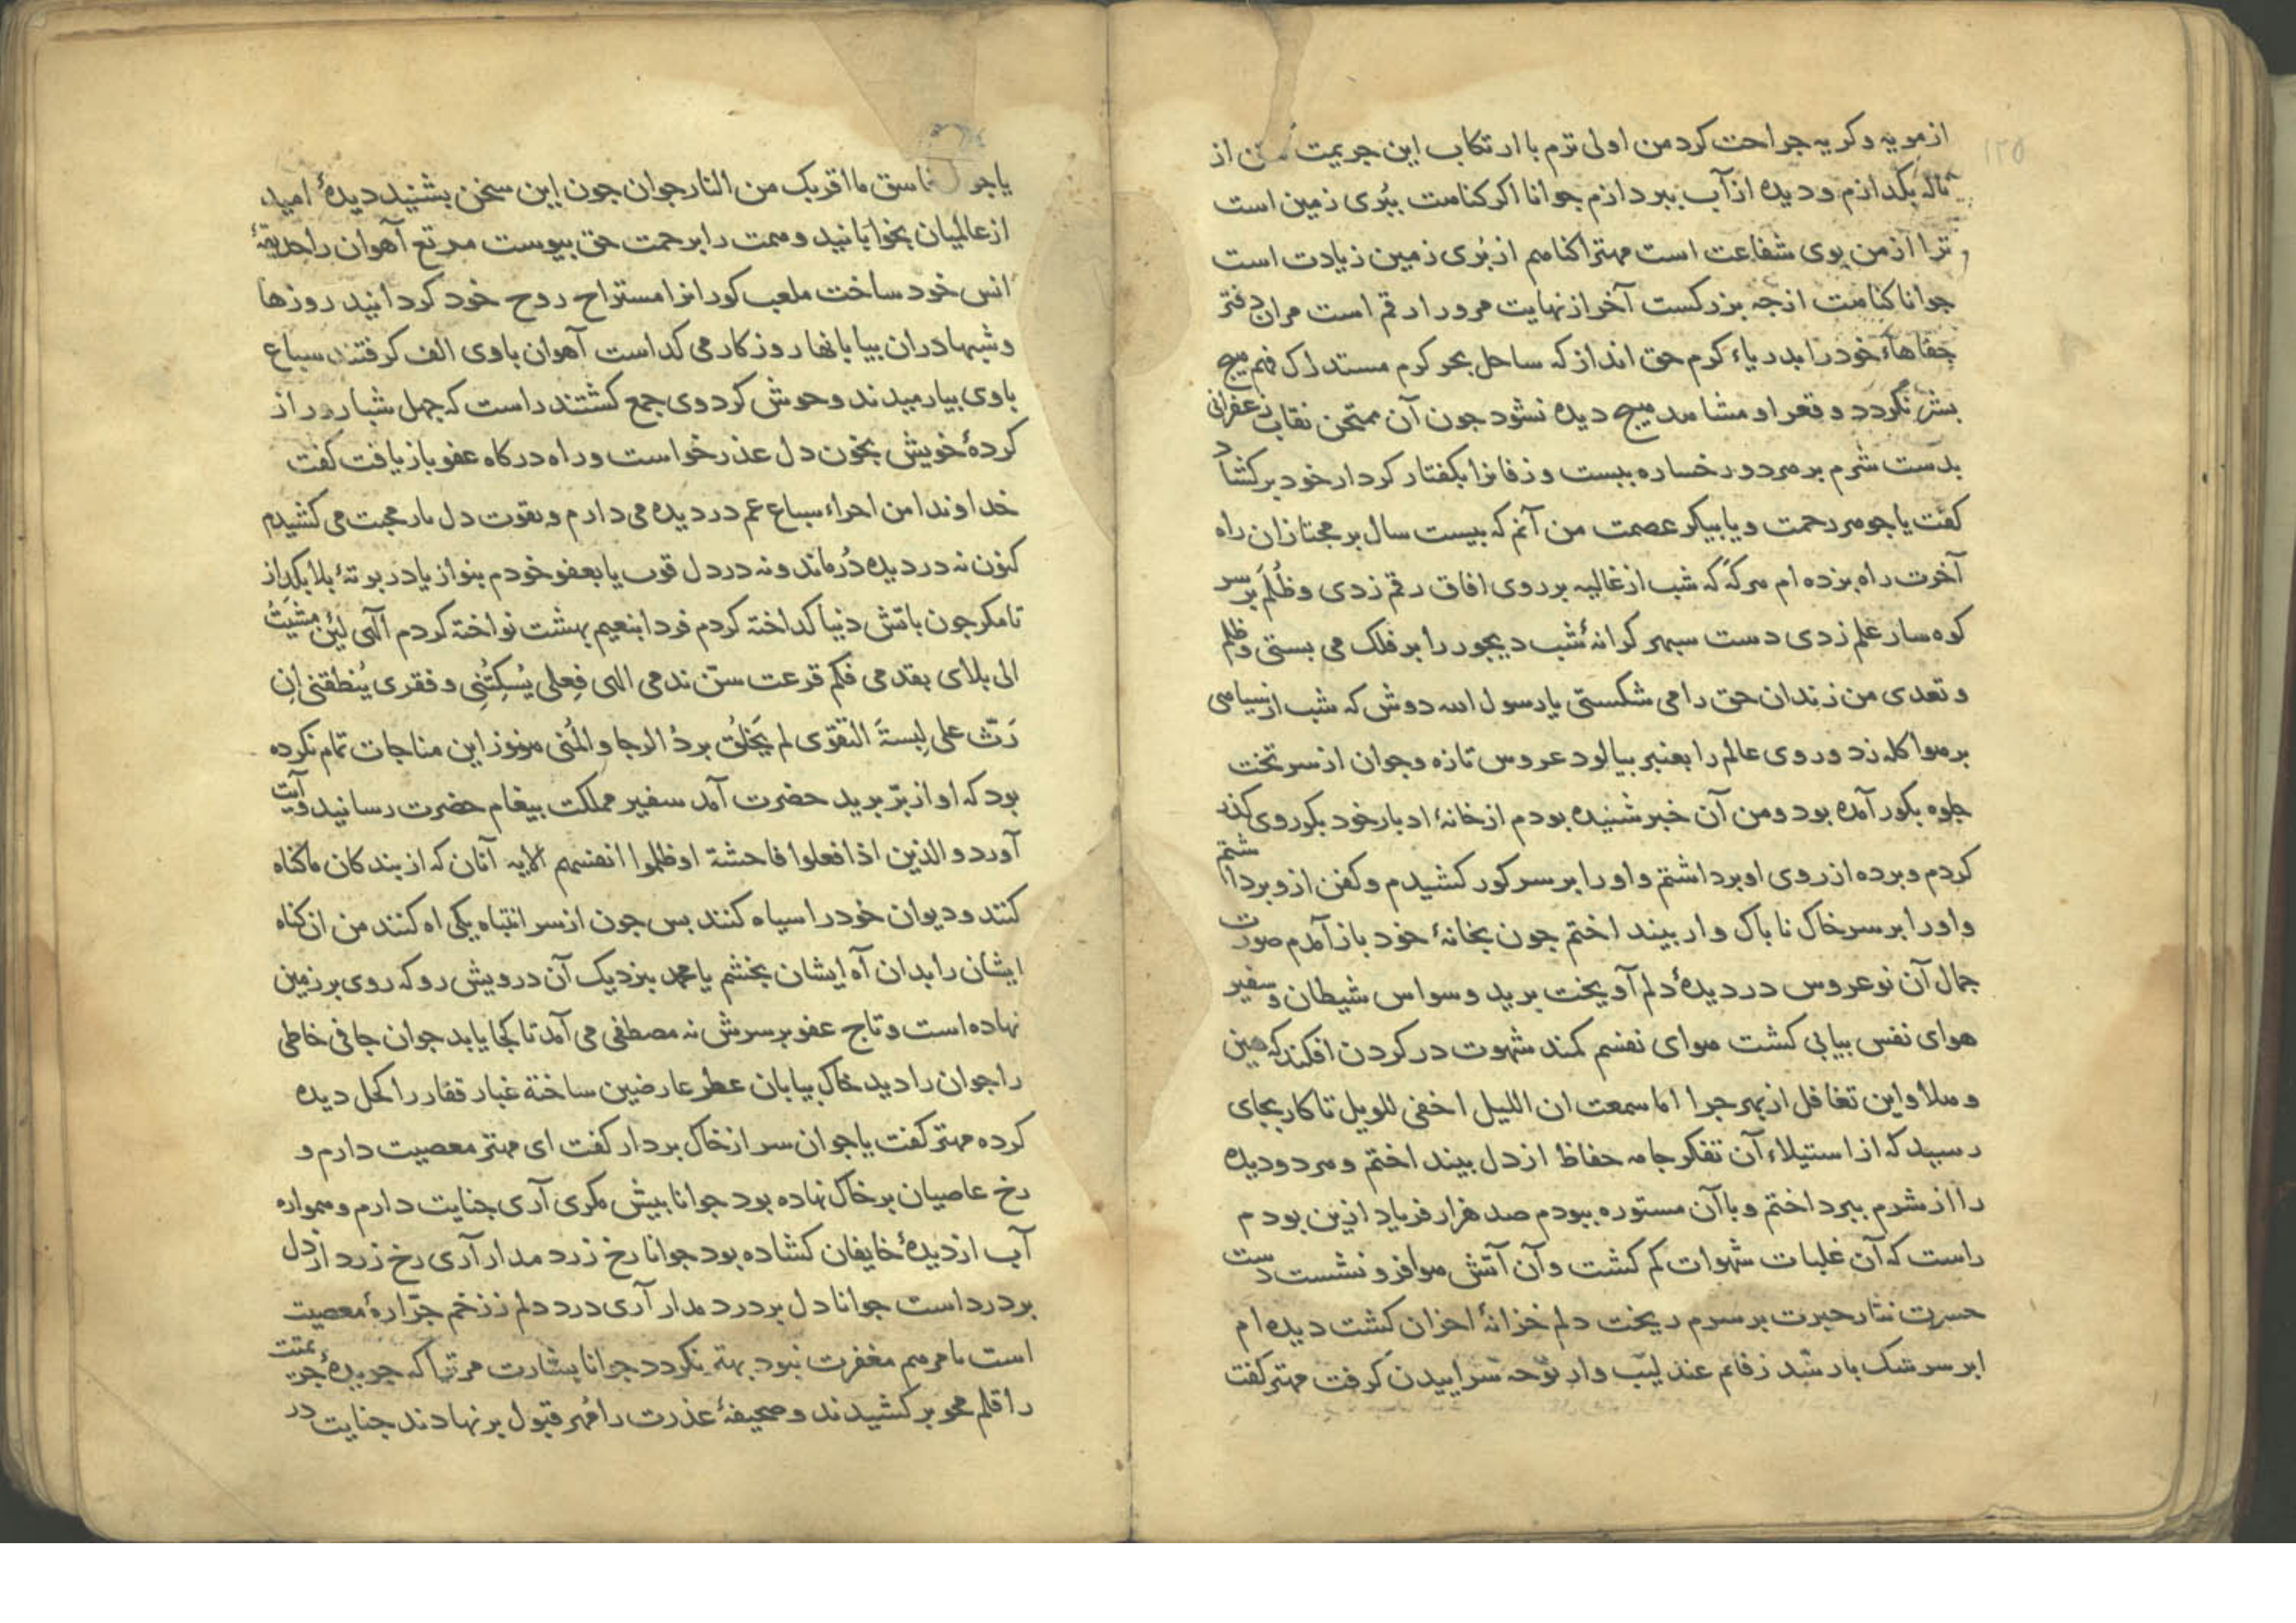 ۱۲۵
از مویه و کریه جراحت کرد من اولی ترم با ارتکاب این جریمت از
ناله بکدازم و دیده از آب ببردازم جوانا اکر کنامت ببُری زمین است
ترا از من بوی شفاعت است مهترا کنامم از بُری زمین زیادت است
جوانا کنامت از جه بزرکست آخر از نهایت مرورا رقم است مران دفتر
جفاهاء خود را بدریاء کرم حق انداز که ساحل بحر کرم مستدرک فهم میج
بشر نکردد و قعر او مشامد میج دیده نشود جون آن ممتحن نقاب زعفرانی
بدست شرم بر مردو رخساره ببست و زفانرا بکفتار کردار خود برکشاد
کفت یا جومر رحمت و یا بیکر عصمت من آنم که بیست سال بر مجتازان راه
آخرت راه بزده ام مرکه که شب از غالیه بر روی افاق رقم زدی و ظُلَم بر سر
کوه سار علم زدی دست سبهر کرانهٔ شب دیجور را بر فلک می بستی و ظلم
و تعدی من زندان حق را می شکستی یا رسول الله دوش که شب از سیامی
بر موا کله زد و روی عالم را بعنبر بیالود عروس تازه و جوان از سر تخت
جلوه بکور آمده بود و من آن خبر شنیده بودم از خانهٔ ادبار خود بکور وی کذر
کردم و برده از روی او برداشتم و او را بر سر کور کشیدم و کفن ازو برداشتم
و او را بر سر خاک ناباک وار بینداختم جون بخانهٔ خود باز آمدم صورت
جمال آن نوعروس در دیدهٔ دلم آویخت برید وسواس شیطان و سفیر
هوای نفس بیابی کشت موای نفسم کمند شهوت در کردن افکند که مین
و ملا و این تغافل از بهر جرا اما سمعت ان اللیل اخفی للویل تا کار بجای
رسید که از استیلاء آن تفکر جامه حفاظ از دل بینداختم و مر دو دیده
را از شرم ببرداختم و با آن مستوره ببودم صد هزار فریاد ازین بودم
راست که آن غلبات شهوات کم کشت و آن آتش موا فرو نشست دست
حسرت نثار حیرت بر سرم ریخت دلم خزانهٔ احزان کشت دیده ام
ابر سرشک بار شد زفانم عندلیب وار نوحه سراییدن کرفت مهتر کفت
ما اقربک من النار جوان جون این سخن بشنید دیدهٔ امید
از عالمیان بخوابانید و ممت را برحمت حق بیوست مرتع آهوان را حدیقهٔ
انس خود ساخت ملعب کورانرا مستراح روح خود کردانید روزها
و شبها دران بیابانها روزکار می کداست آهوان با وی الف کرفتند سباع
با وی بیارمیدند و حوش کرد وی جمع کشتند راست که جهل شبا روز از
کردهٔ خویش بخون دل عذر خواست و راه درکاه عفو باز یافت کفت
خداوندا من اجراء سباع غم در دیده می دارم و بقوت دل بار محبت می کشیدم
کنون نه در دیده دُر ماند و نه در دل قوت یا بعفو خودم بنواز یا در بوتهٔ بلا بکداز
تا مکر جون باتش دنیا کداخته کردم فردا بنعیم بهشت نواخته کردم آلهی لئن مشیتُ
الی بلای بقدمی فکم قرعت سنّ ندمی الهی فِعلی یُسکِتُنِی و فقری یُنطقنی اِن
رَثّ علی لِبسةَ التقوی لم یَخلُق بردُ الرجا و المُنی منوز این مناجات تمام نکرده
بود که اواز برّ برید حضرت آمد سفیر مملکت بیغام حضرت رسانید و آیت
آورد و الذین اذا فعلوا فاحشة او ظلموا انفسهم الایه آنان که از بندکان ما کناه
کنند و دیوان خود را سیاه کنند بس جون از سر انتباه یکی اه کنند من ان کناه
ایشان را بدان آه ایشان بخشم یا محمد بنزدیک آن درویش رو که روی بر زمین
نهاده است و تاج عفو بر سرش نه مصطفی می آمد تا کجا یابد جوان جافی خاطی
را جوان را دید خاک بیابان عطر عارضین ساخته غبار قفار را کحل دیده
کرده مهتر کفت یا جوان سر از خاک بردار کفت ای مهتر معصیت دارم و
رخ عاصیان بر خاک نهاده بود جوانا بیش مکری آری جنایت دارم و مموازه
آب از دیدهٔ خایفان کشاده بود جوانا رخ زرد مدار آری رخ زرد از دل
بر درد است جوانا دل بر درد مدار آری درد دلم ز زخم جرّارهٔ معصیت
است تا مرمم مغفرت نبود بهتر نکردد جوانا بشارت مر ترا که جریدهٔ جریمتت
را قلم محو بر کشیدند و صحیفهٔ عذرت را مُهر قبول بر نهادند جنایت در